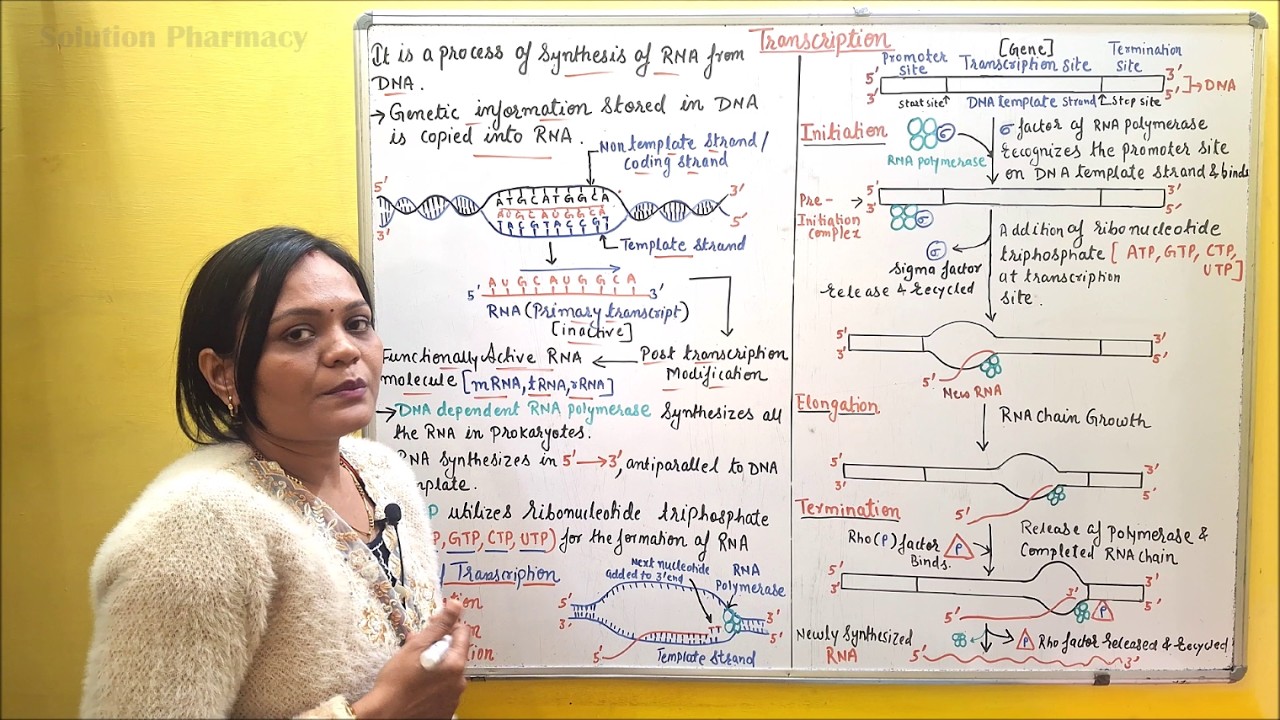 Solution Pharmacy
Transcription
It is a process of synthesis of RNA from
DNA.
→ Genetic information stored in DNA
is copied into RNA.
Non template strand/
coding strand
5' 3'
3' 5'
A T G C A T G G C A
A U G C A U G G C A
T A C G T A C C G T
Template strand
A U G C A U G G C A
5' 3'
RNA (Primary transcript)
[inactive]
Post transcription
Modification
Functionally Active RNA
molecule [mRNA, tRNA, rRNA]
→ DNA dependent RNA polymerase synthesizes all
the RNA in prokaryotes.
RNA synthesizes in 5' → 3', antiparallel to DNA
mplate.
P utilizes ribonucleotide triphosphate
P, GTP, CTP, UTP) for the formation of RNA
Transcription
tion
n
tion
Next nucleotide
added to 3' end
RNA
Polymerase
5' 3'
3' 5'
TT
5'
Template strand
Promoter
site
[Gene]
Transcription site
Termination
site
5' 3'
3' 5' → DNA
start site↑ DNA template strand ↑stop site
Initiation
σ
RNA polymerase
σ factor of RNA polymerase
recognizes the promoter site
on DNA template strand & binds
Pre-
Initiation
complex
5' 3'
3' 5'
σ
σ
Sigma factor
release & recycled
Addition of ribonucleotide
triphosphate [ATP, GTP, CTP,
UTP]
at transcription
site.
5' 3'
3' 5'
5'
New RNA
Elongation
RNA chain Growth
5' 3'
3' 5'
5'
Termination
Rho(ρ) factor
Binds.
ρ
Release of polymerase &
Completed RNA chain
5' 3'
3' 5'
3'
5'
ρ
ρ Rho factor Released & Recycled
Newly Synthesized
RNA
5' 3'